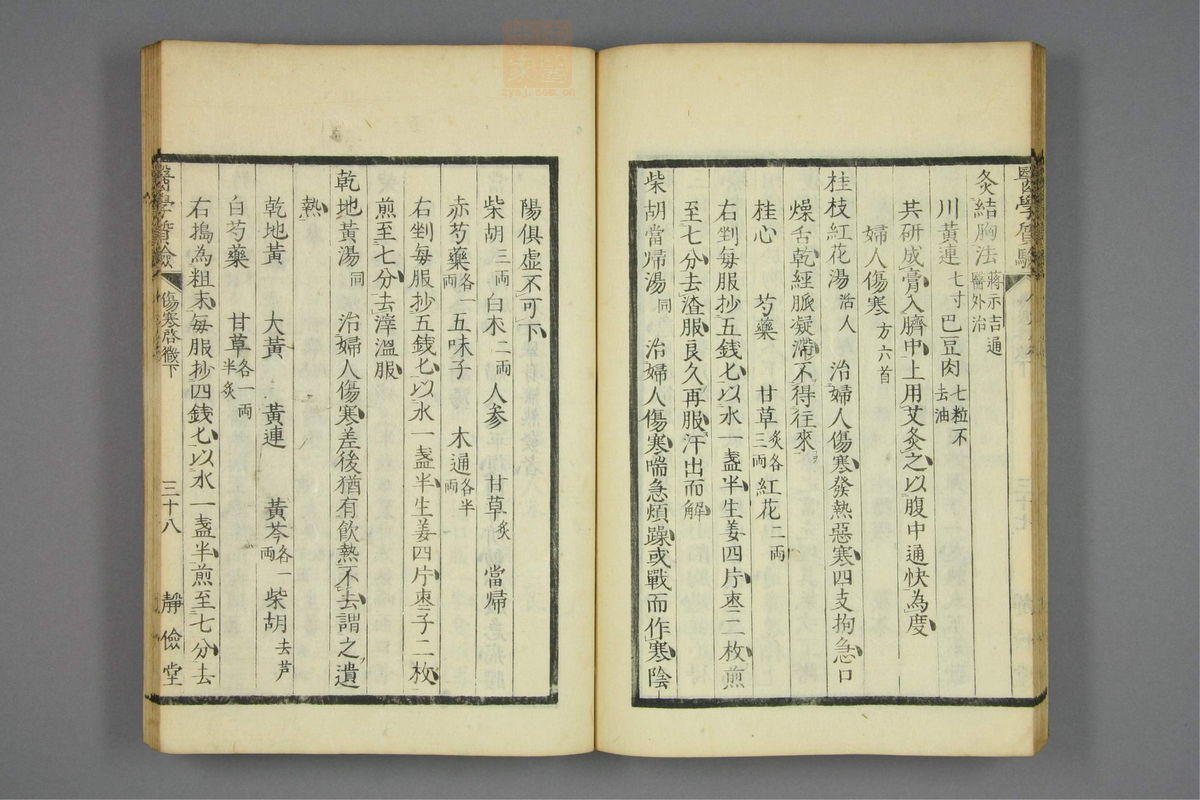 灸結胸法 蔣示吉通醫外治
川黃連七寸 巴豆肉七粒不去油
共研成膏入臍中上用艾灸之以腹中通快為度
婦人傷寒方六首
桂枝紅花湯活人 治婦人傷寒發熱惡寒四支拘急口
燥舌乾經脈凝滯不得往來
桂心 芍藥 甘草炙各三兩 紅花二兩
右剉每服抄五錢匕以水一盞半生姜四片枣二枚煎
至七分去渣服良久再服汗出而解
柴胡當歸湯同 治婦人傷寒喘急煩躁或戰而作寒陰
陽俱虛不可下
柴胡三兩 白木二兩 人参 甘草炙 當歸
赤芍藥各一兩 五味子 木通各半兩
右剉每服抄五錢匕以水一盞半生姜四片枣子二枚
煎至七分去滓溫服
乾地黃湯同 治婦人傷寒差後猶有飲熱不去謂之遺
熱
乾地黃 大黃 黃連 黃芩各一兩 柴胡去芦
白芍藥 甘草各一兩半炙
右搗為粗末每服抄四錢匕以水一盞半煎至七分去
醫學質驗 傷寒啓微下 三十八 靜儉堂